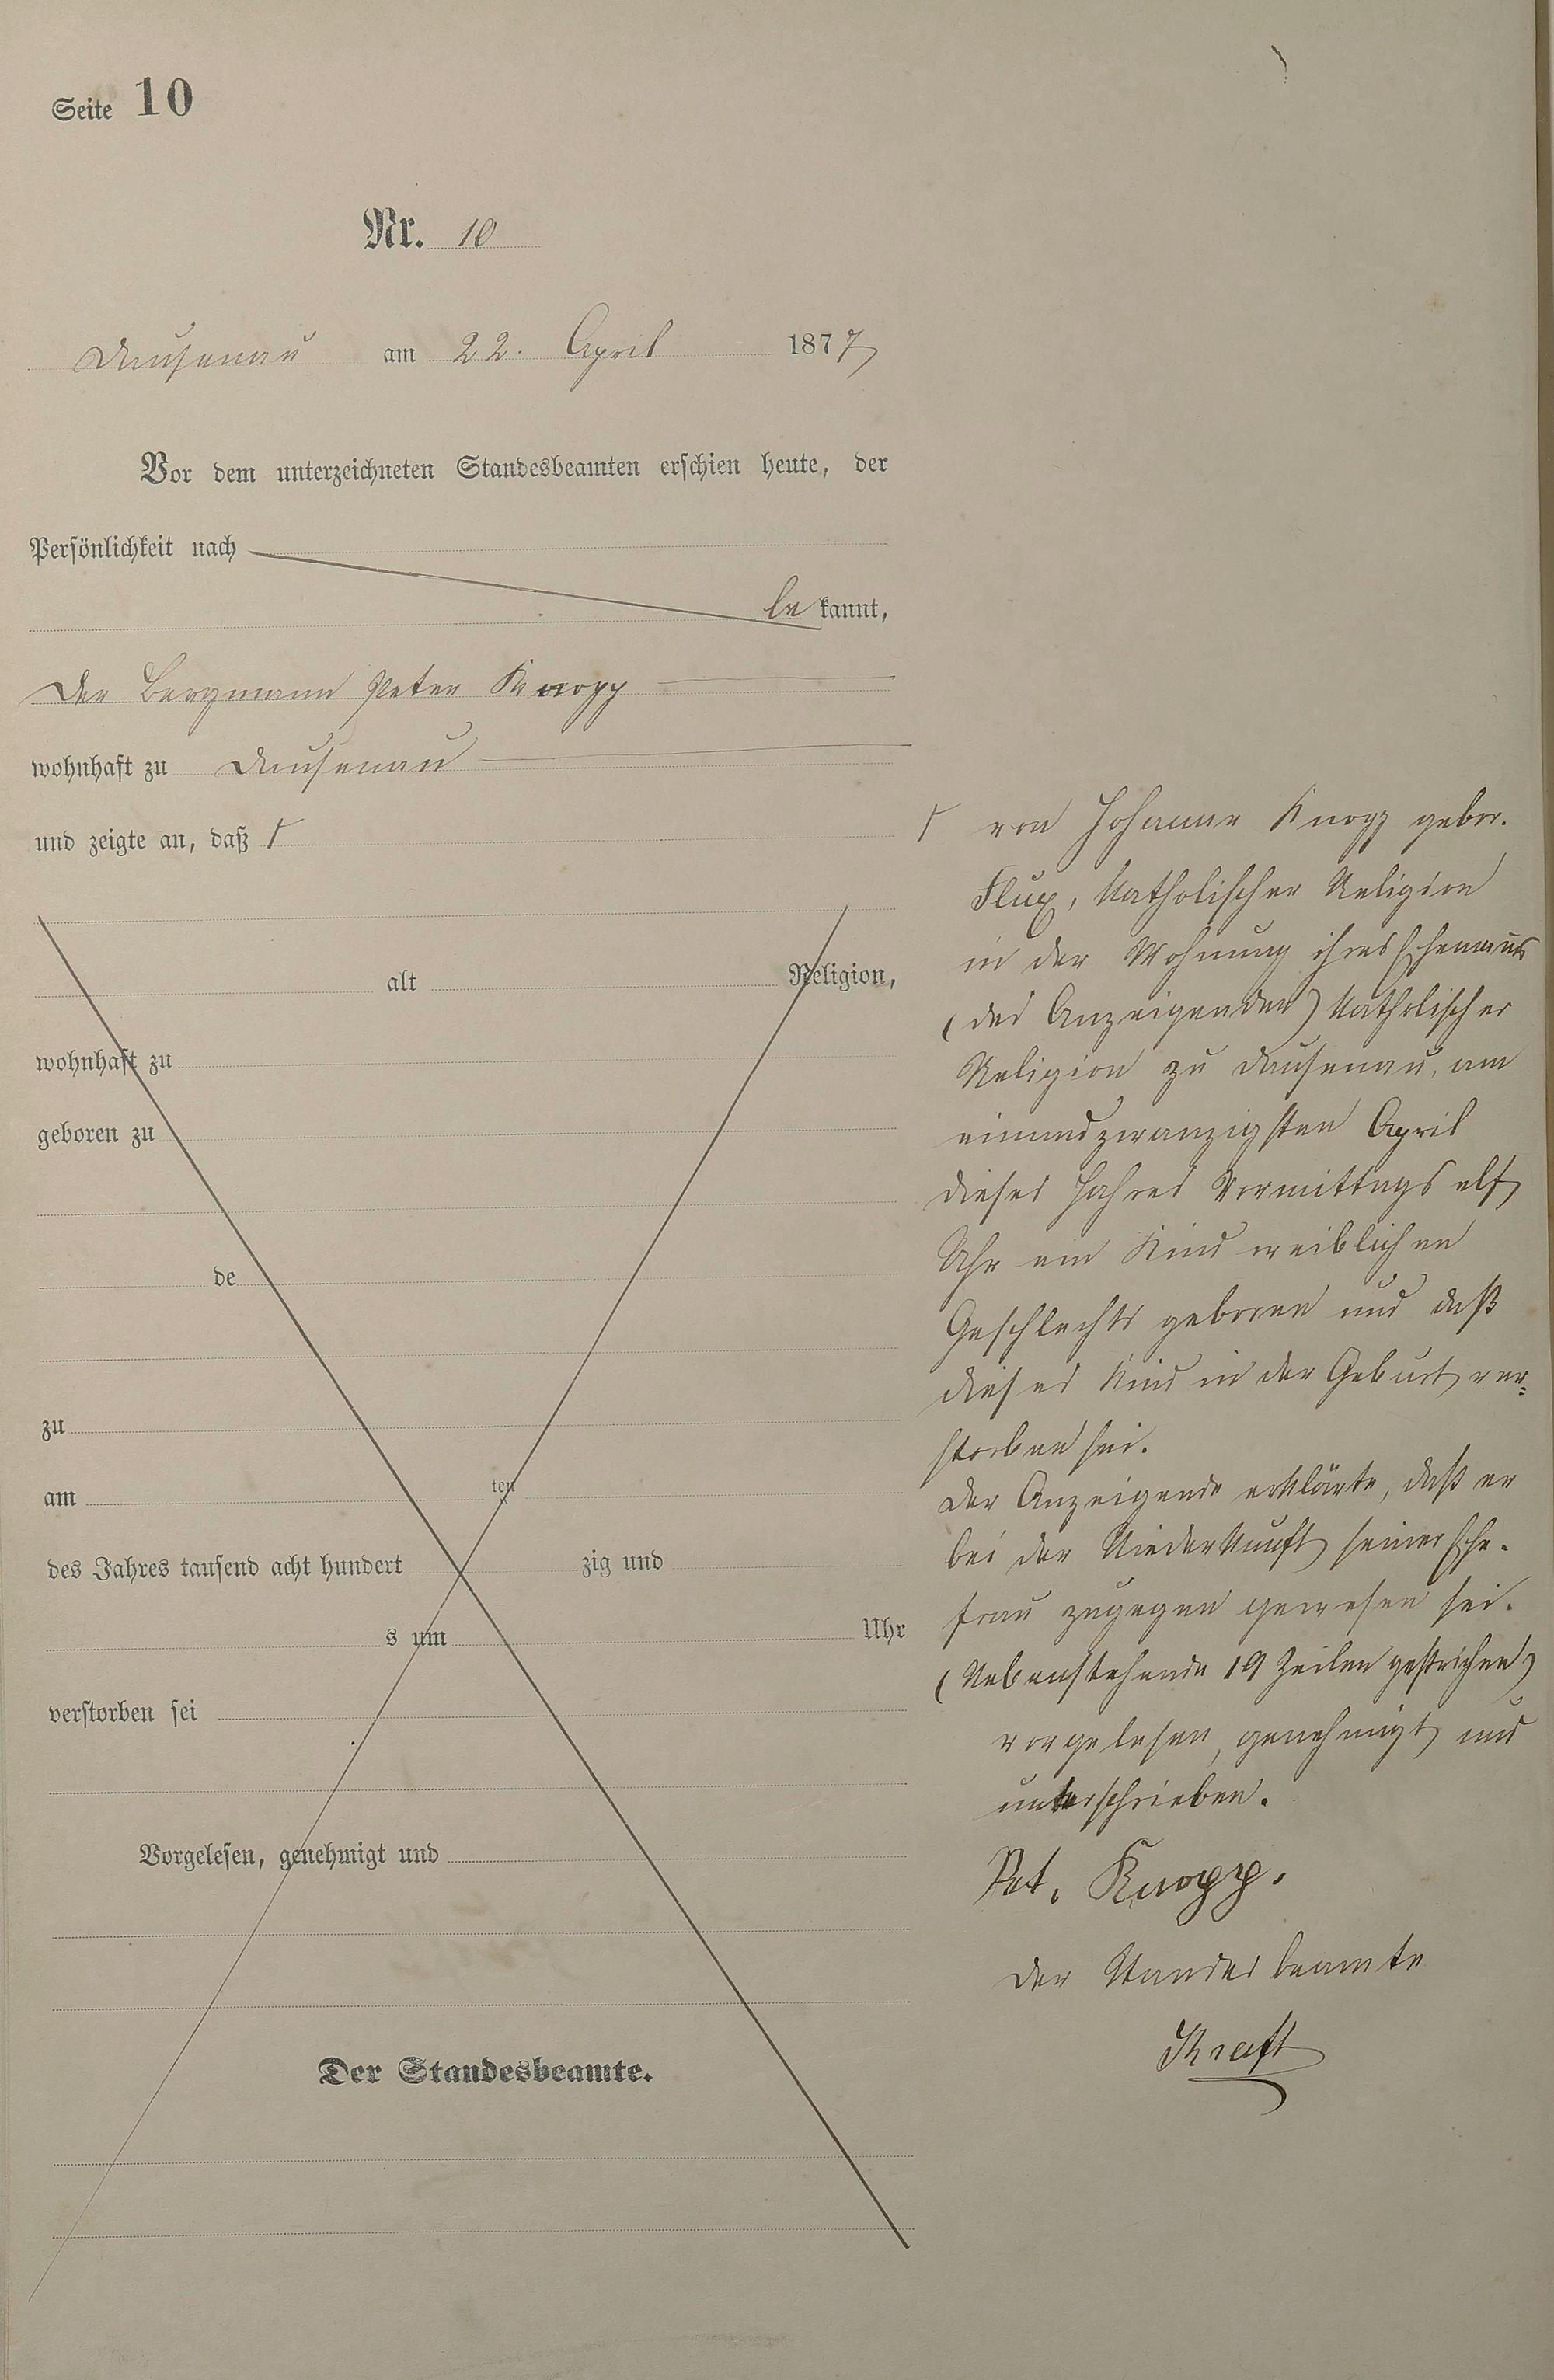 Seite 10
Nr. 10
Dausenau am 22. April 1877
Vor dem unterzeichneten Standesbeamten erschien heute, der
Persönlichkeit nach
bekannt,
der Bergmann Peter Knopp
wohnhaft zu Dausenau
und zeigte an, daß Γ
alt Religion,
wohnhaft zu
geboren zu
de
zu
am ten
des Jahres tausend acht hundert zig und
s um Uhr
verstorben sei
Vorgelesen, genehmigt und
Der Standesbeamte.
Γ von Johanna Knopp gebor.
Flux, katholischer Religion
in der Wohnung ihres Ehemanns
(des Anzeigenden) katholischer
Religion zu Dausenau, am
einundzwanzigsten April
dieses Jahres Vormittags elf
Uhr ein Kind weiblichen
Geschlechts geboren und daß
dieses Kind in der Geburt ver=
storben sei.
Der Anzeigende erklärte, daß er
bei der Niederkunft seiner Ehe-
frau zugegen gewesen sei.
(Nebenstehende 19 Zeilen gestrichen)
vorgelesen, genehmigt und
unterschrieben.
Pet. Knopp.
Der Standesbeamte
Kraft